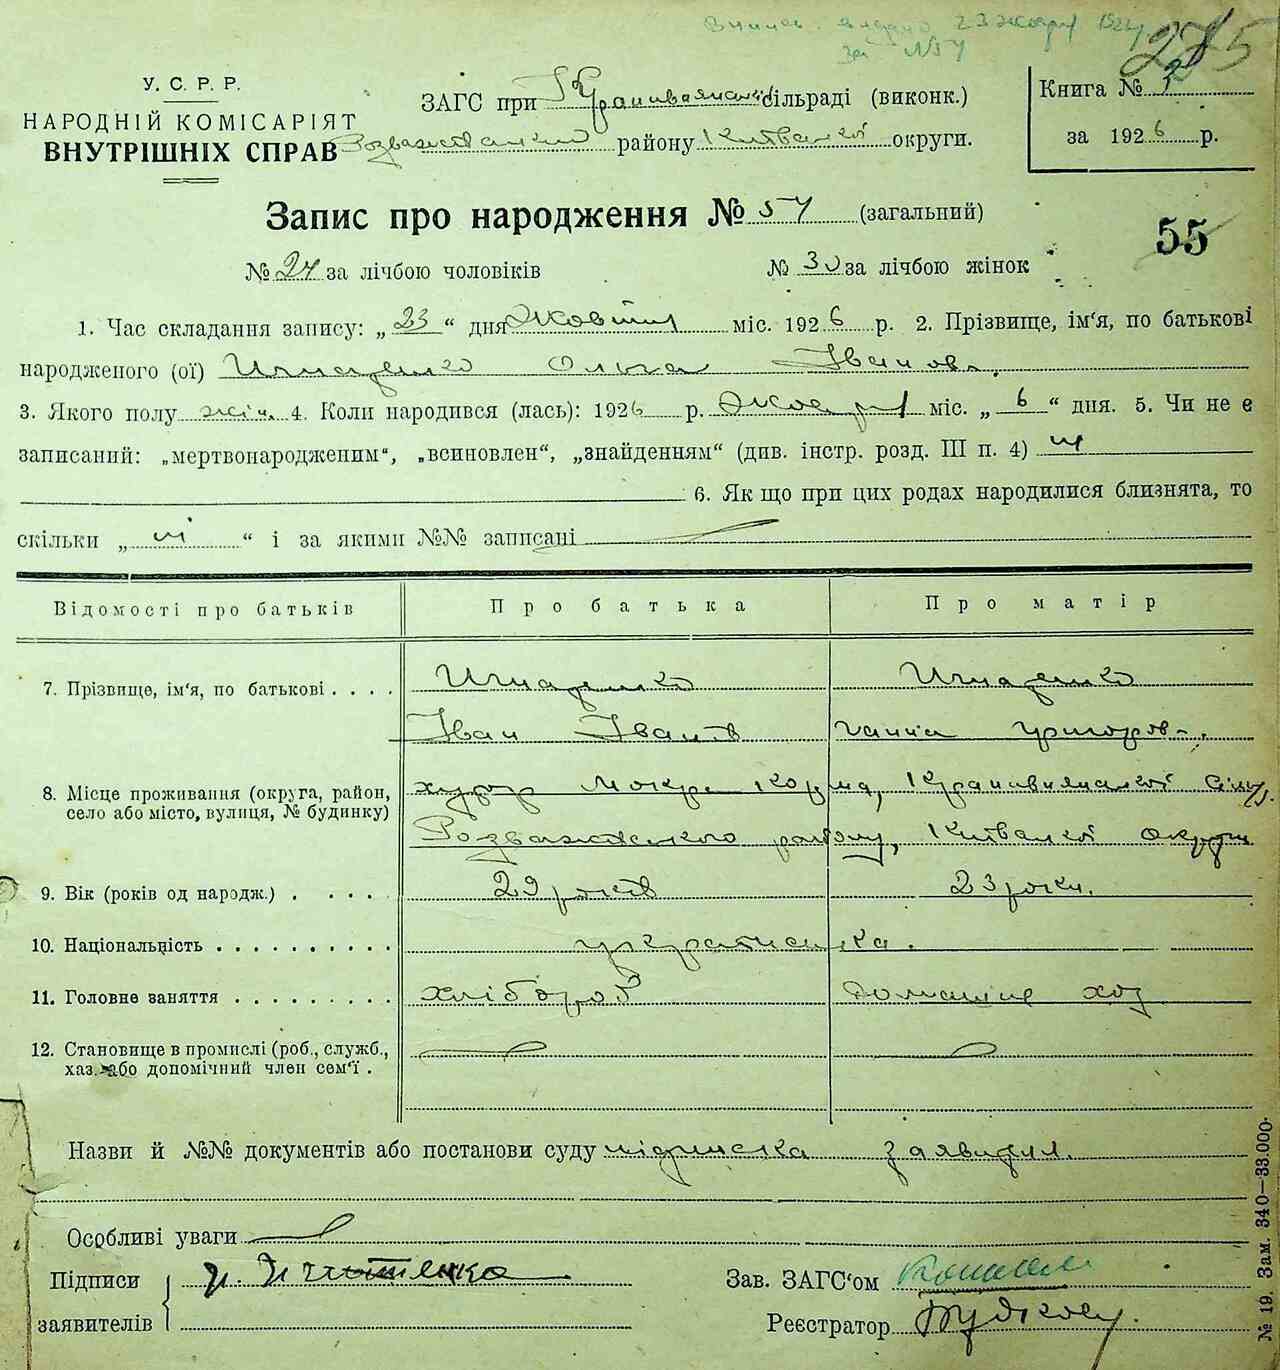 Випись видано 23 жовтня 192
за №57
275
У. С. Р. Р.
НАРОДНІЙ КОМІСАРІЯТ
ВНУТРІШНІХ СПРАВ
ЗАГС при Крапивянській сільраді (виконк.)
Розважівського району Київської округи.
Книга №
за 1926 р.
Запис про народження № 57 (загальний)
55
№ 27 за лічбою чоловіків № 30 за лічбою жінок
1. Час складання запису: „23“ дня Жовтня міс. 1926 р. 2. Прізвище, ім‘я, по батькові
народженого (ої) Игнатенко Ольга Іванов.
3. Якого полу жін. 4. Коли народився (лась): 1926 р. Жовтня міс. „6“ дня. 5. Чи не є
записаний: „мертвонародженим“, „всиновлен“, „знайденням“ (див. інстр. розд. III п. 4) ні
6. Як що при цих родах народилися близнята, то
скільки „ні“ і за якими №№ записані
Відомості про батьків Про батька Про матір
7. Прізвище, ім‘я, по батькові . . . . Игнатенко Игнатенко
Іван Іванов Ганна Григоров.
8. Місце проживання (округа, район, хутор Мокра Корма, Крапивянської
село або місто, вулиця, № будинку)
Розважівського району, Київської округи
9. Вік (років од народж.) . . . . . 29 років 23 роки.
10. Національність . . . . . . . . . . українська.
11. Головне заняття . . . . . . . . . хлібороб домашнє хоз
12. Становище в промислі (роб., служб.,
хаз. або допомічний член сем‘ї .
Назви й №№ документів або постанови суду підписка заявител.
Особливі уваги
Підписи И. Игнатенко
заявителів
Зав. ЗАГС‘ом
Реєстратор
№ 19. Зам. 340—33.000.